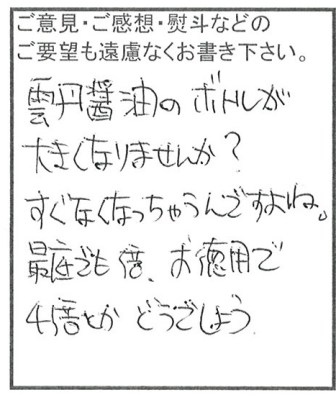 ご意見・ご感想・熨斗などの
ご要望も遠慮なくお書き下さい。
雲丹醤油のボトルが
大きくなりませんか？
すぐなくなっちゃうんですよね。
最低でも倍、お徳用で
4倍とかどうでしょう